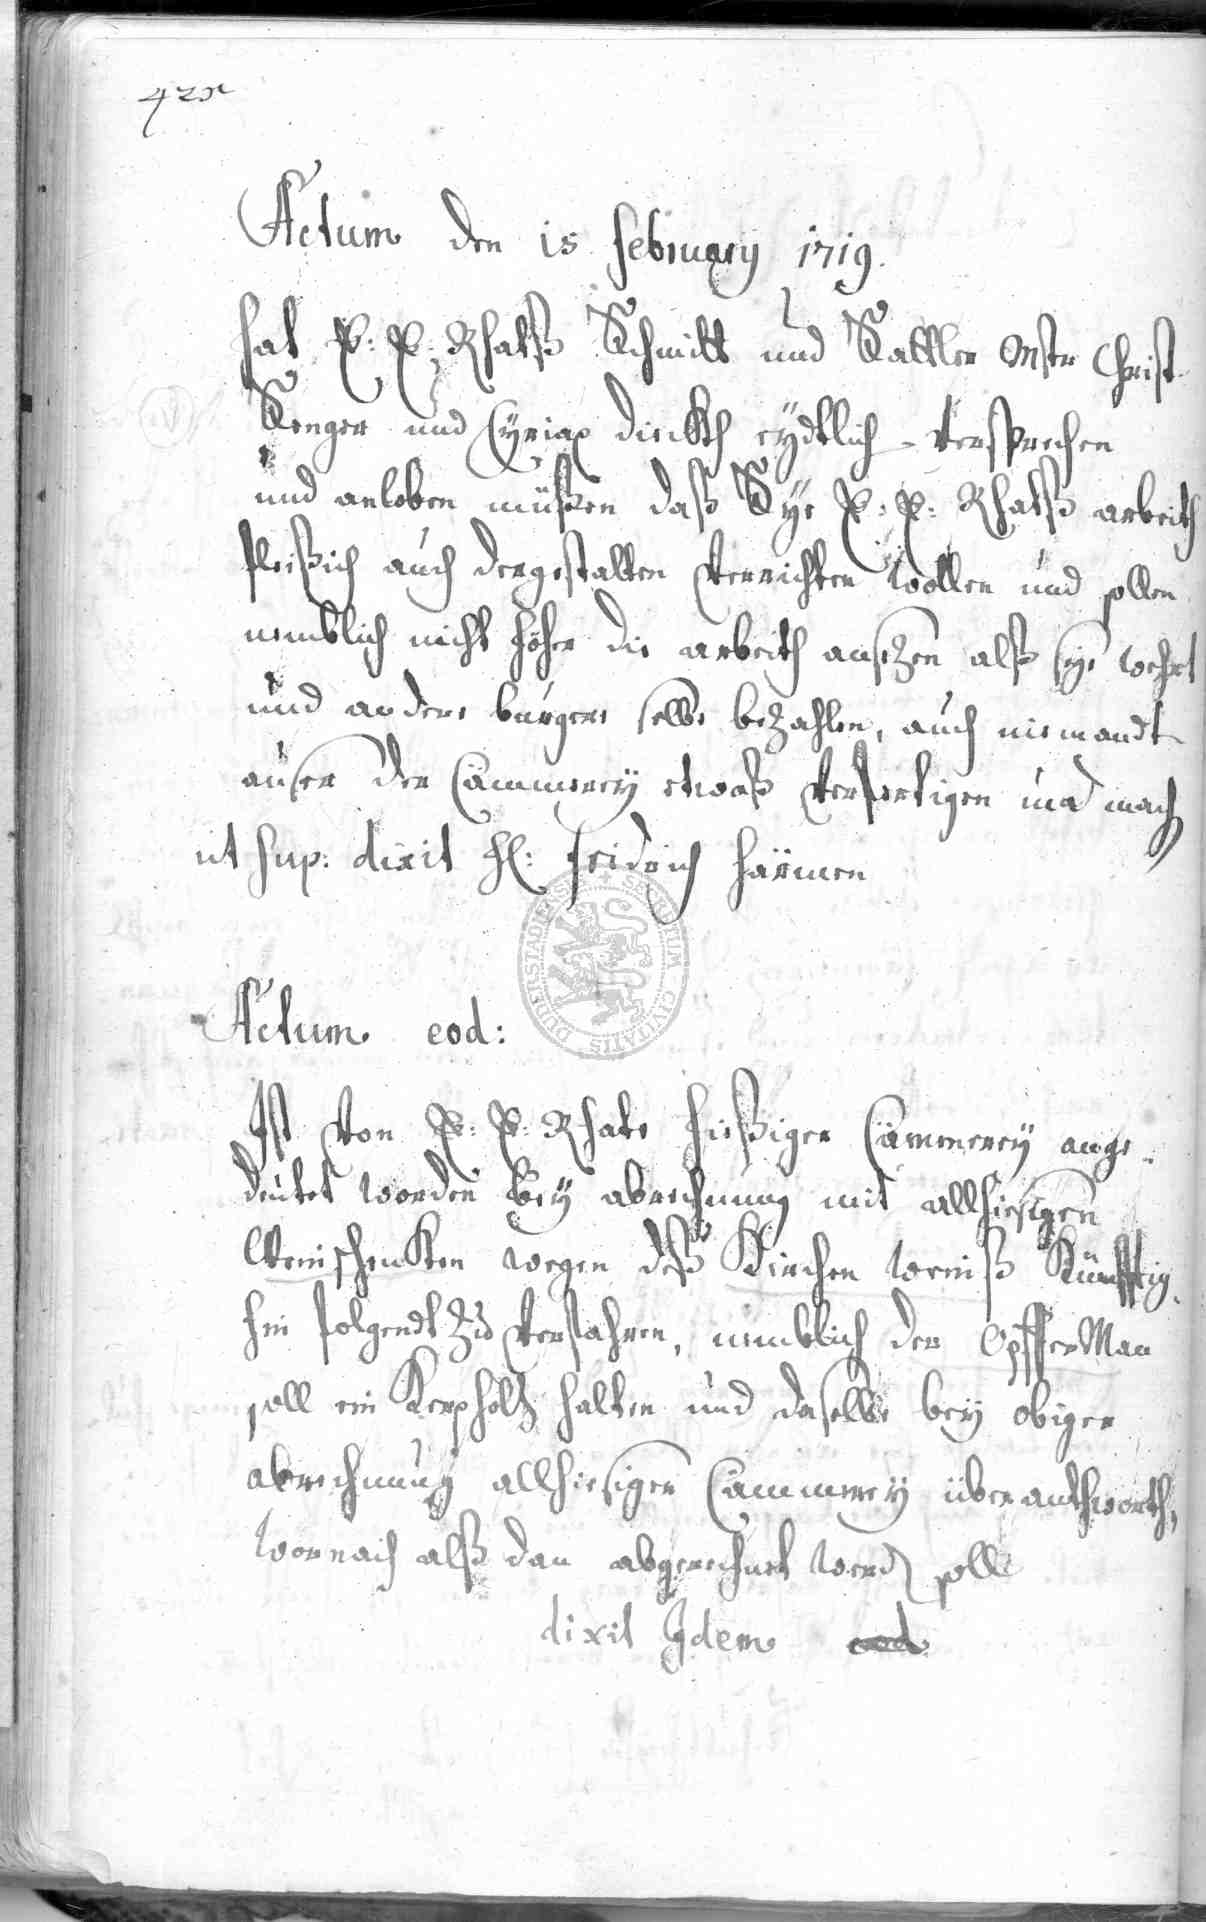 42v
Actum den 15 february 1719.
hat E: E: Rhatß Schmitt und Sattler Mstr Christ
Senger und Cyriax dirckth eydtlich versprechen
und anloben müßen daß Sye E: E: Rhatß arbeith
fleißich auch dergestalten verrichten wollen und sollen
nemblich nicht höher die arbeith ansezen alß sye wehrt
und andere burgere selbe bezahlen, auch niemandt
auser der Cämmerey etwaß verfertigen und mach
ut sup: dixit H: fridrich härmen
SECRETUM CIVITATIS DUDERSTADIENSE
Actum eod:
Ist von E: E: Rhate hießiger Cämmerey ange
deutet worden bey abrechnung mit allhiesigen
Weinschenken wegen deß Kirchen weinß Künfftig
hin folgendt zu verfahren, nemblich der OpfferMan
soll ein Kerpholtz halten und daselbe bey obiger
abrechnung allhiesiger Cämmerey überanthworth,
wornach alß dan abgerechnet werd soll
dixit Idem eod: